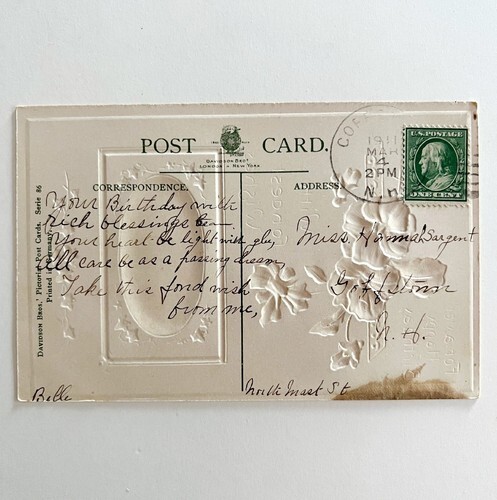 POST CARD.
DAVIDSON BROS.
LONDON & NEW YORK
CORRESPONDENCE.
ADDRESS.
Your Birthday with
rich blessings
Your heart be light with glee,
All care be as a passing dream
Take this fond wish
from me,
Belle
Miss Hannah Sargent
Goffstown
N. H.
North Mast St
1911
MAR
4
2 PM
N.H.
U.S. POSTAGE
ONE CENT
DAVIDSON BROS.' Pictorial Post Cards. Serie 86
Printed in Germany.